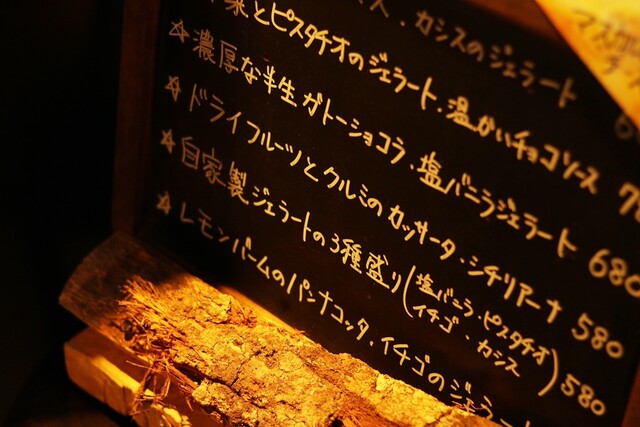 カシスのジェラート 6
とピスタチオのジェラート、温かいチョコソース 7
☆濃厚な半生ガトーショコラ、塩バニラジェラート 680
☆ドライフルーツとクルミのカッサータ・シチリアーナ 580
☆自家製ジェラートの3種盛り(塩バニラ・ピスタチオ イチゴ・カシス) 580
☆レモンバームのパンナコッタ、イチゴのジェラート